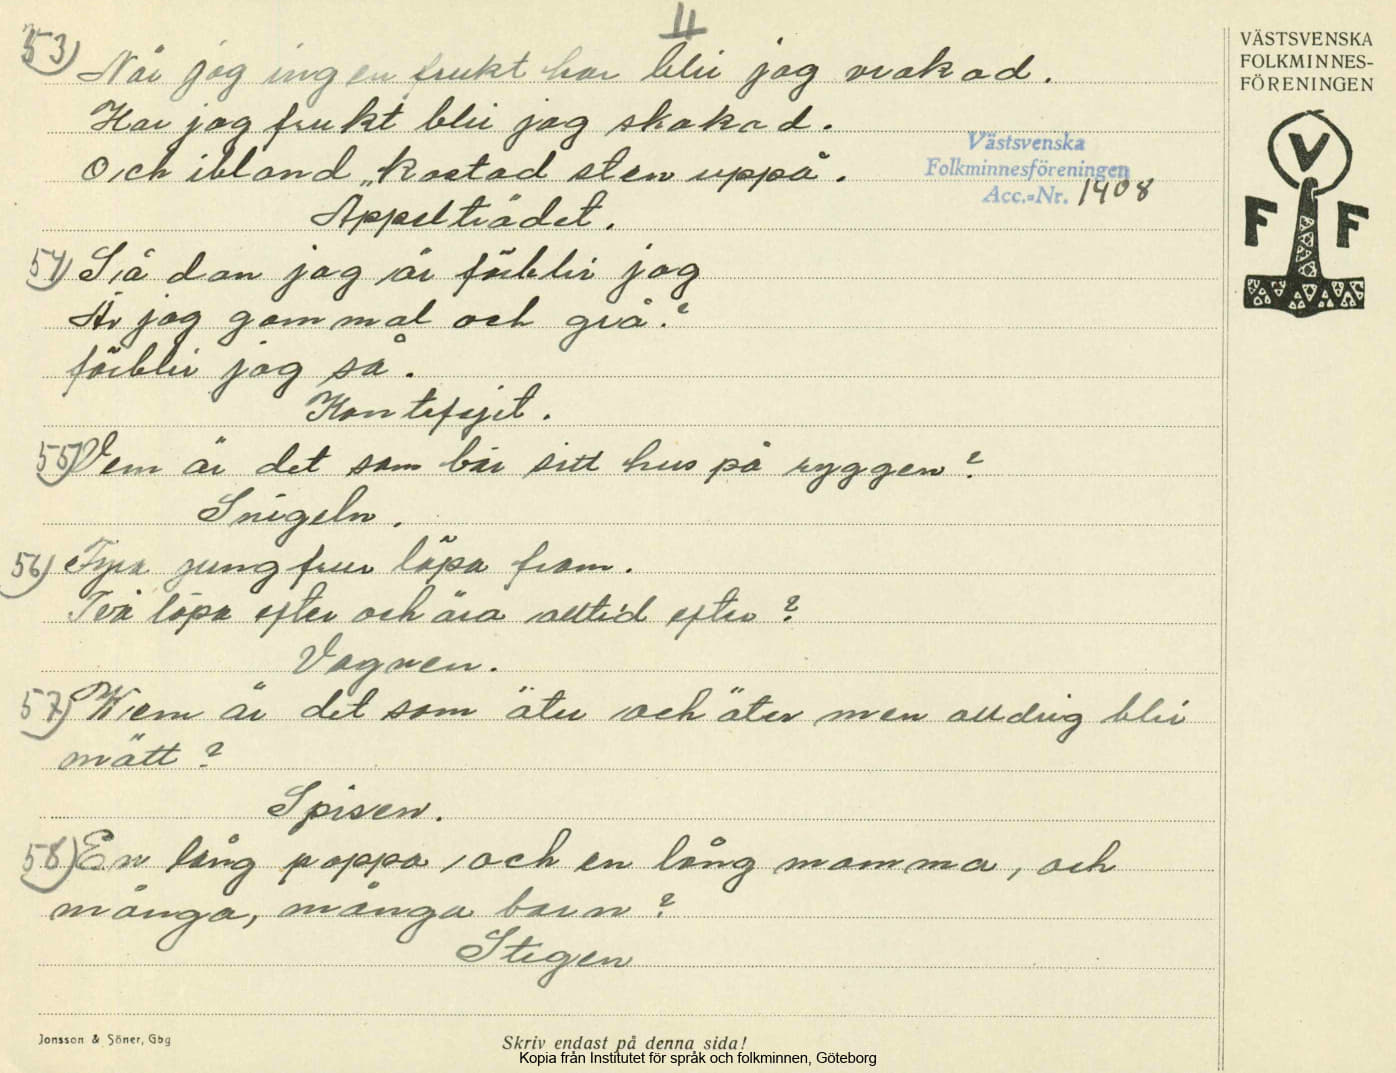 11
53) När jag ingen frukt har blir jag vrakad.
Har jag frukt blir jag skakad.
Och ibland „kastad sten uppå.
Appelträdet.
54) Så dan jag är förblir jag
Är jag gammal och grå?
förblir jag så.
Konterfejet.
55) Vem är det som bär sitt hus på ryggen?
Snigeln.
56) Fyra jungfrur löpa fram.
Två löpa efter och ära alltid efter?
Vagnen.
57) Wem är det som äter och äter men alldrig blir
mätt?
Spisen.
58) En lång pappa, och en lång mamma, och
många, många barn?
Stegen
VÄSTSVENSKA
FOLKMINNES-
FÖRENINGEN
V
F F
Västsvenska
Folkminnesföreningen
Acc.-Nr. 1408
Jonsson & Söner, Gbg
Skriv endast på denna sida!
Kopia från Institutet för språk och folkminnen, Göteborg